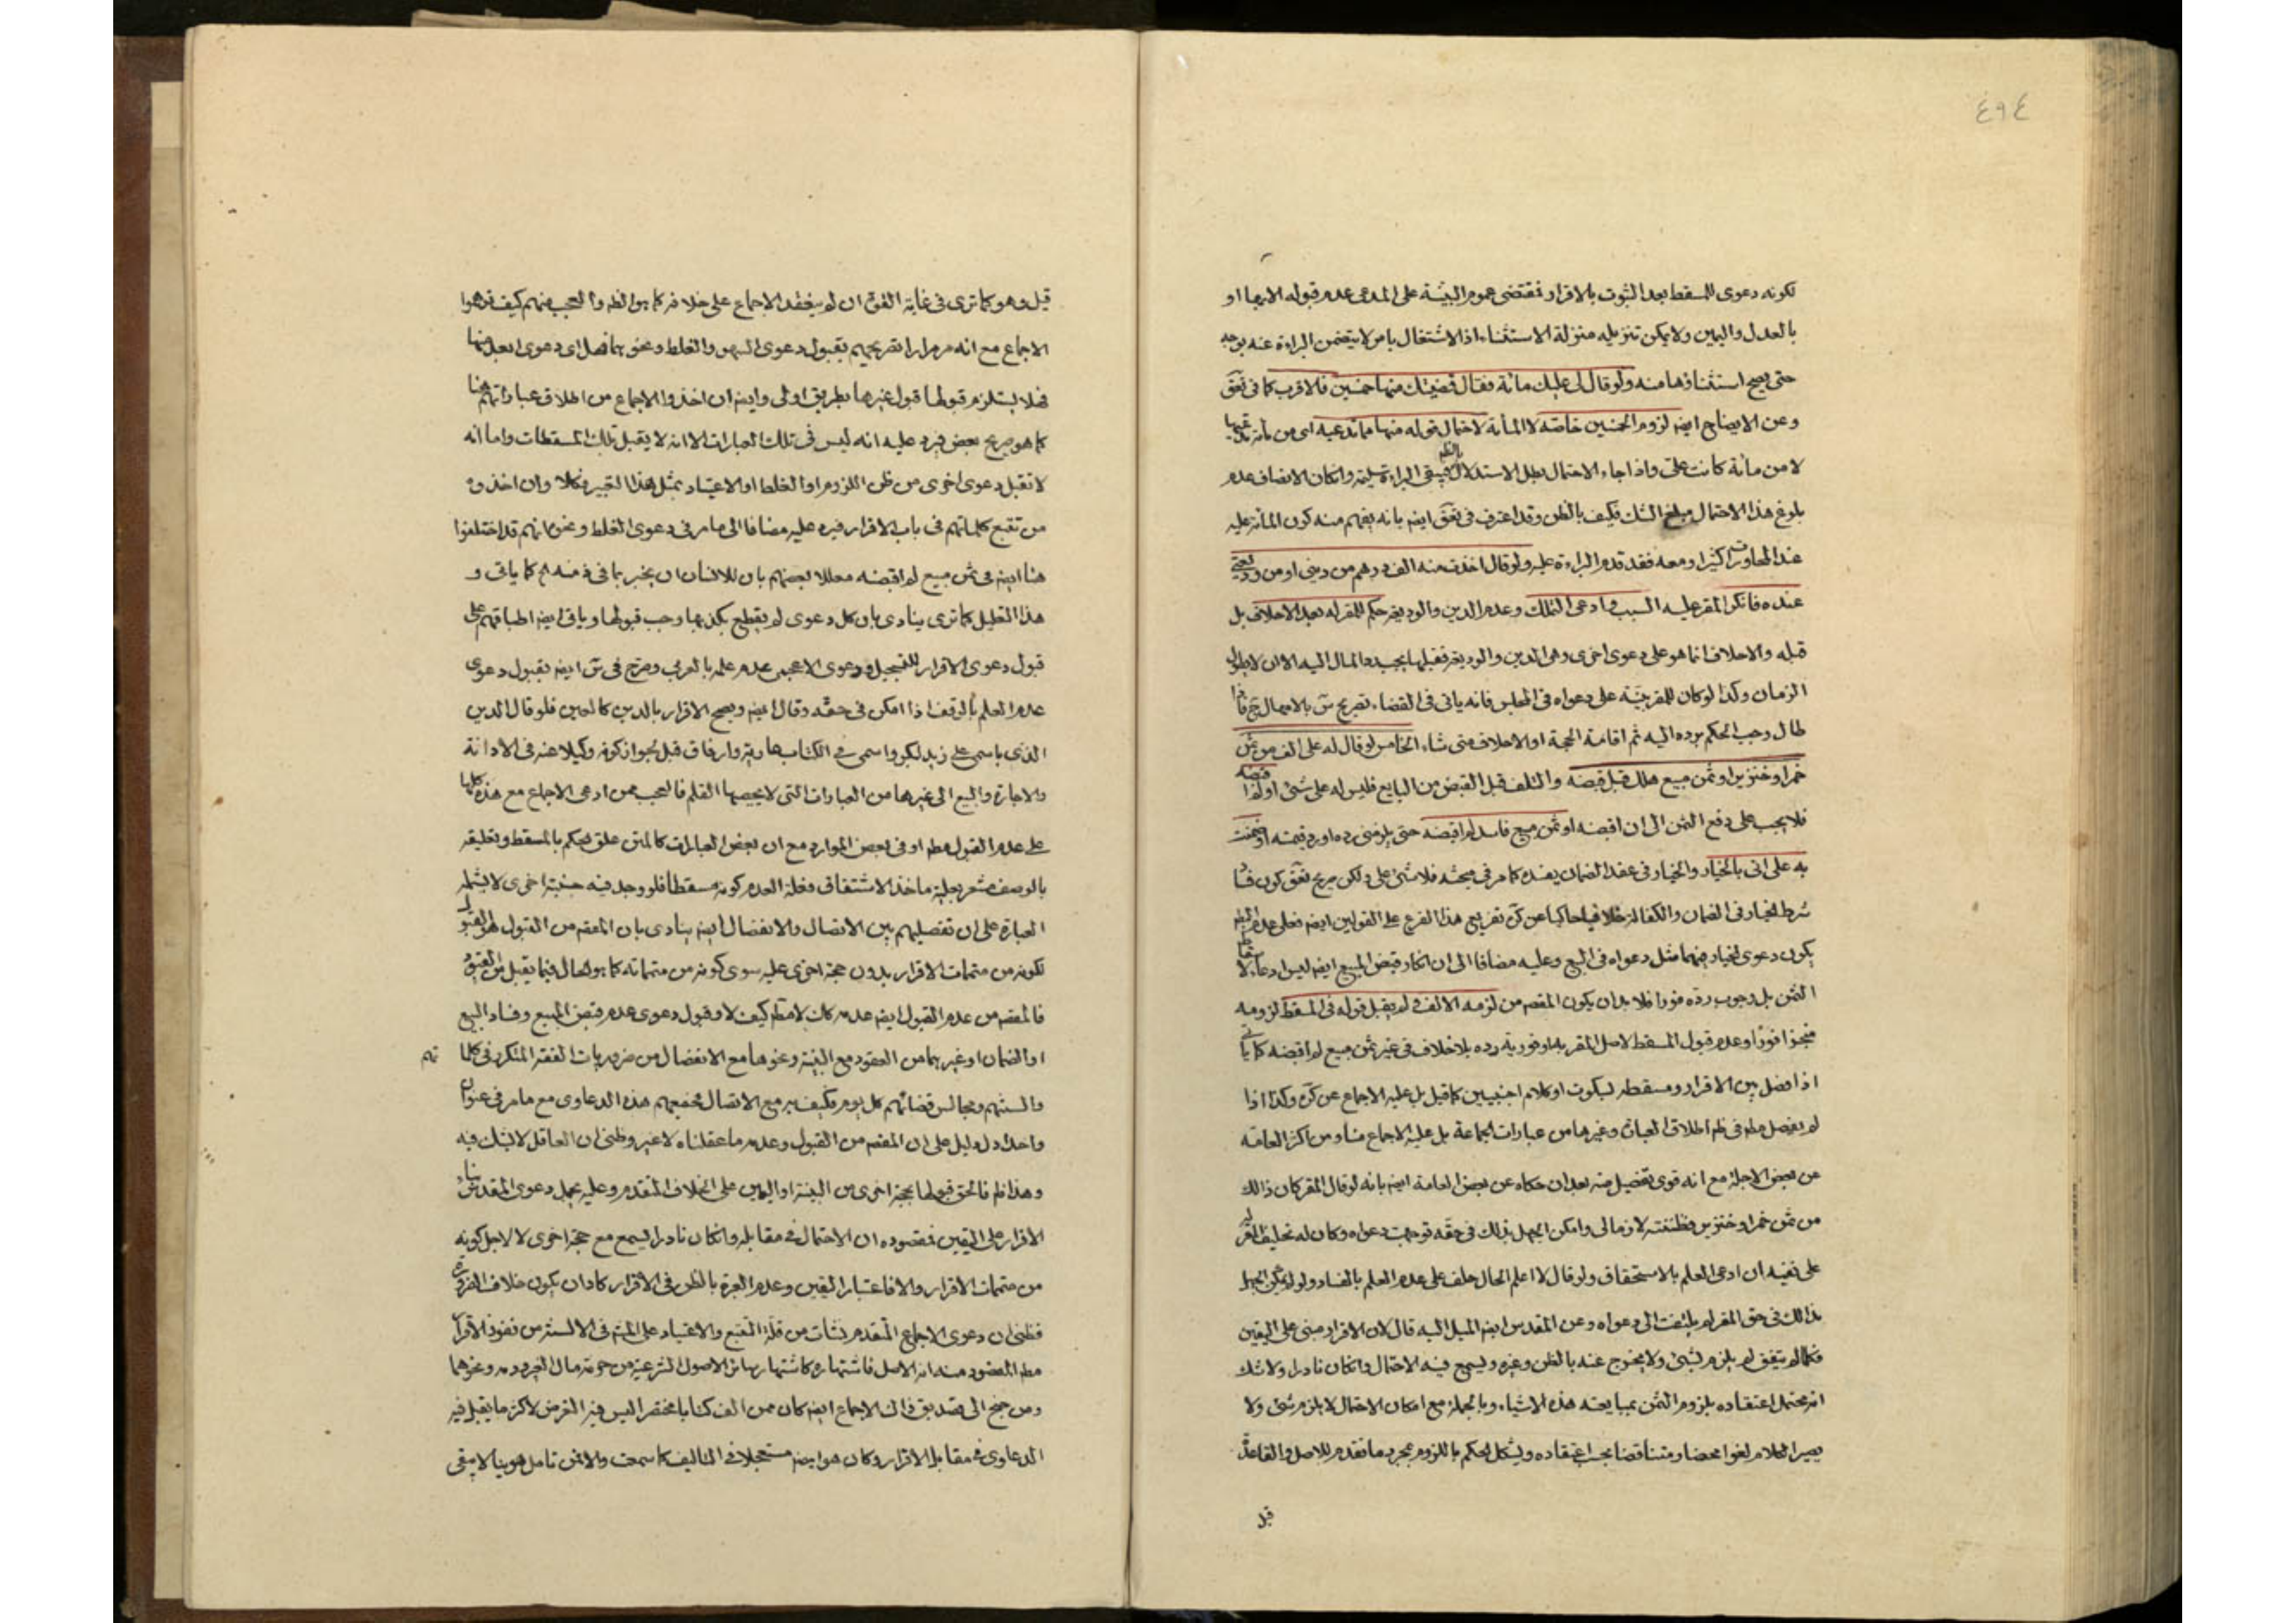 ٤٩٤
لكونه دعوى للمسقط بعد الثبوت بالاقرار فمقتضى عموم البينة على المدعى عدم قبوله الا بها او
بالعدل واليمين ولا يمكن تنزيله منزلة الاستثناء اذ الاشتغال بامر لا يتضمن البراءة عنه بوجه
حتى يصح استثناؤها منه ولو قال لى عليك مائة فقال قضيتك منها خمسين فالاقرب كما فى تعق
وعن الايضاح ايضه لزوم الخمسين خاصة لا المأة لاحتمال قوله منها مما تدعيه اى من مأة تدعيها
لا من مائة كانت على واذا جاء الاحتمال بطل الاستدلال فيبقى البراءة سليمة وان كان الانصاف عدم
بلوغ هذا الاحتمال مبلغ الشك فكيف بالظن وقد اعترف فى تعق ايضه بانه يفهم منه كون المأة عليه
عند المحاورات كثيرا ومعه فقد تقدم البراءة عليه ولو قال اخذت منه الف درهم من دينى او من وديعتى
عنده فانكر المقر عليه السبب وادعى التملك وعدم الدين والوديعة حكم للمقر له بعد الاحلاف بل
قبله والاحلاف انما هو على دعوى اخرى وهى الدين والوديعة فقبلها يجب رد المال اليه الا ان لا يطول
الزمان وكذا لو كان للمقر بينة على دعواه فى المجلس فانه ياتى فى القضاء تصريح س بالامهال ح فاذا
طال وجب الحكم برده اليه ثم اقامة الحجة او الاحلاف متى شاء الخامس لو قال له على الف من ثمن
خمر او خنزير او ثمن مبيع هلك قبل قبضه والتلف قبل القبض من البايع فليس له على شىء او لم اقبضه
فلا يجب على دفع الثمن الى ان اقبضه او ثمن مبيع فاسد لم اقبضه حتى يلزمنى رده او رد قيمته او ضمنت
به على انى بالخيار والخيار فى عقد الضمان يفسده كما مر فى مبحثه فلا شىء على ولكن صريح تعق كون فساد
شرط الخيار فى الضمان والكفالة خلافيا حاكيا عن كره تفريع هذا الفرع على القولين ايضه فعلى عدم
يكون دعوى الخيار فيهما مثل دعواه فى البيع وعليه مضافا الى ان انكار قبض المبيع ايضه ليس ادعاء
الثمن بل وجوب رده فورا فلا بد ان يكون المقصد من لزمه الالف ولم يقبل قوله فى المسقط لزومه
منجزا فورا وعدم قبول المسقط لاصل المقر به او فورية رده بلا خلاف فى غير ثمن مبيع لم اقبضه كما ياتى
اذا فصل بين الاقرار ومسقطه لسكوت او كلام اجنبيين كما قيل بل عليه الاجماع عن كره وكذا اذا
لم يفصل مطه فى ظم اطلاق العبارة وغيرها من عبارات الجماعة بل عليه الاجماع منا ومن اكثر العامة
من بعض الاجلة مع انه قوى تفصيل منه بعد ان حكاه عن بعض العامة ايضه بانه لو قال المقر كان ذالك
من ثمن خمر او خنزير فظننته لازما لى وامكن الجهل بذلك فى حقه توجهت دعواه وكان له تحليف المقر له
على نفيه ان ادعى العلم بالاستحقاق ولو قال لا اعلم الحال حلف على عدم العلم بالفساد ولو لم يمكن الجهل
بذالك فى حق المقر لم يلتفت الى دعواه وعن المقدس ايضه الميل اليه قال لان الاقرار مبنى على اليقين
فكلما لم يتيقن لم يلزم لشىء ولا يخرج عنه بالظن وغيره ويسمع فيه الاحتمال وان كان نادرا ولا شك
انه يحتمل اعتقاده بلزوم الثمن بمبايعة هذه الاشياء وبالجملة مع امكان الاحتمال لا يلزم شىء ولا
يصير الكلام لغوا محضا ومتناقضا بحسب اعتقاده ويشكل الحكم باللزوم بمجرد ما تقدم للاصل والقاعدة
قيل
قيل وهو كما ترى فى غاية القوة ان لم ينعقد الاجماع على خلافه كما هو الظه والعجب منهم كيف توهموا
الاجماع مع انه مر مرارا تصريحهم بقبول دعوى السهو والغلط ونحوهما فصل اى دعوى ابعد منها
فلا يستلزم قبولها قبول غيرها بطريق اولى وايضه ان اخذوا الاجماع من اطلاق عباراتهم هنا
كما هو صريح بعض فيرد عليه انه ليس فى تلك العبارات الا انه لا يقبل تلك المسقطات واما انه
لا تقبل دعوى اخرى من ظن اللزوم او الغلط او الاعتياد بمثل هذا التعبير فكلا وان اخذوه
من تتبع كلماتهم فى باب الاقرار فيرد عليه مضافا الى ما مر فى دعوى الغلط ونحو ما انهم قد اختلفوا
هنا ايضه فى ثمن مبيع لم اقبضه معللا بعضهم بان للانسان ان يخبر بما فى ذمته كما ياتى و
هذا التعليل كما ترى ينادى بان كل دعوى لم يقطع بكذبها وجب قبولها وياتى ايضه اطباقهم على
قبول دعوى الاقرار للتسجيل ودعوى الاعجمى عدم علمه بالعربى وصرح فى س ايضه بقبول دعوى
عدم العلم بالوقف اذا امكن فى حقه وقال ايضه ويصح الاقرار بالدين كالعين فلو قال الدين
الذى باسمى على زيد لبكر واسمى فى الكتاب عارية وارفاق قبل لجواز كونه وكيلا عنه فى الادانة
والاجارة والبيع الى غيرها من العبارات التى لا يحصيها القلم فالعجب ممن ادعى الاجماع مع هذه كلها
على عدم القبول مطه او فى بعض الموارد مع ان بعض العبارات كالمتن علق الحكم بالمسقط وتعليقه
بالوصف مشعر بعلية ماخذ الاشتقاق فعلة العدم كونه مسقطا فلو وجد فيه حيثية اخرى لا يشمله
العبارة على ان تفصيلهم بين الاتصال والانفصال ايضه ينادى بان المقصد من القبول هو القبول
لكونه من متممات الاقرار بدون حجة اخرى عليه سوى كونه من متمماته كما هو الحال فيما يقبل من القيود
فالمقصد من عدم القبول ايضه عدمه كك لا مطه كيف لا وقبول دعوى عدم قبض المبيع وفساد البيع
او الضمان او غيرهما من العقود مع البينة ونحوها مع الانفصال من ضروريات الفقه المتكرر فى كلماتهم
والسنتهم ومجالس قضائهم كل يوم فكيف به مع الاتصال فجمعهم هذه الدعاوى مع ما مر فى عنوان
واحد ادل دليل على ان المقصد من القبول وعدمه ما عقلناه لا غير وظنى ان العاقل لا يشك فيه
وهذا ظم فالحق قبولها بحجة اخرى من البينة او اليمين على الخلاف المتقدم وعليه يحمل دعوى المقدس بناء
الاقرار على اليقين فمقصوده ان الاحتمال فى مقابله وان كان نادرا يسمع مع حجة اخرى لا لاجل كونه
من متممات الاقرار والا فاعتبار اليقين وعدم العبرة بالظن فى الاقرار كاد ان يكون خلاف الضرورة
فظنى ان دعوى الاجماع المتقدم نشات من قلة التتبع والاعتياد على المتم فى الالسنة من نفوذ الاقرار
مطه المقصود منه انه الاصل فاشتهاره كاشتهار سائر الاصول الشرعية من حرمة مال الغير ودمه ونحوهما
ومن جنح الى تصديق ذالك الاجماع ايضه كان ممن الف كتابا مختصرا ليس فيه الغرض لاكثر ما يقبل فيه
الدعاوى فى مقابل الاقرار وكان هو ايضه مستعجلا فى التاليف كما سمعت والا فمن تامل هوينا لا يبقى